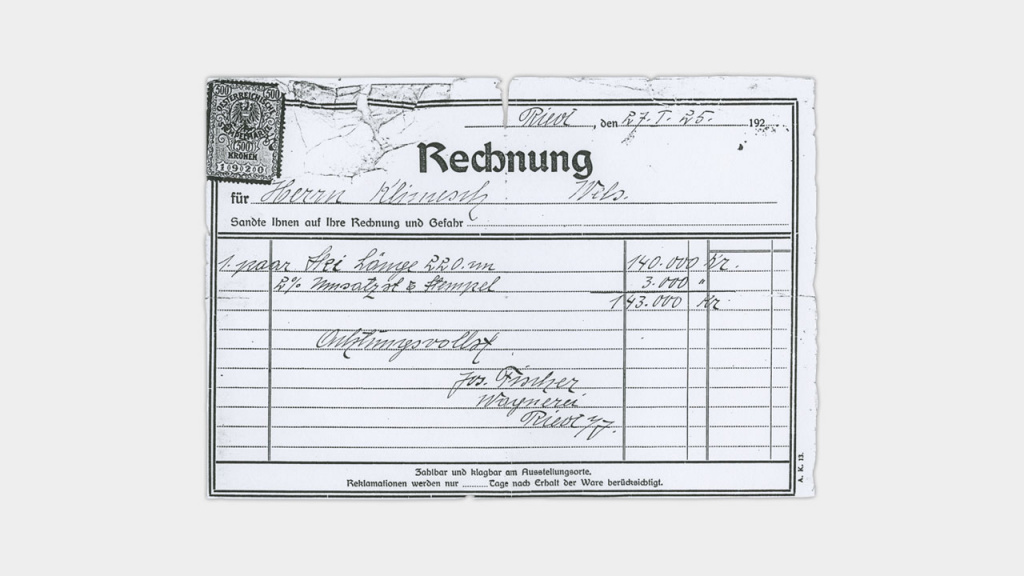 300 500
ÖSTERREICHISCHE
STEMPELMARKE
(500)
KRONEN
1920
Ried, den 27. I. 25. 192
Rechnung
für Herrn Klimesch Wels.
Sandte Ihnen auf Ihre Rechnung und Gefahr
1 paar Ski Länge 220. 140.000 Kr.
2% Umsatzst & Stempel 3.000 "
143.000 Kr
Achtungsvollst
Jos. Fischer
Wagnerei
Ried i/I.
Zahlbar und klagbar am Ausstellungsorte.
Reklamationen werden nur ........ Tage nach Erhalt der Ware berücksichtigt.
A. K. 13.